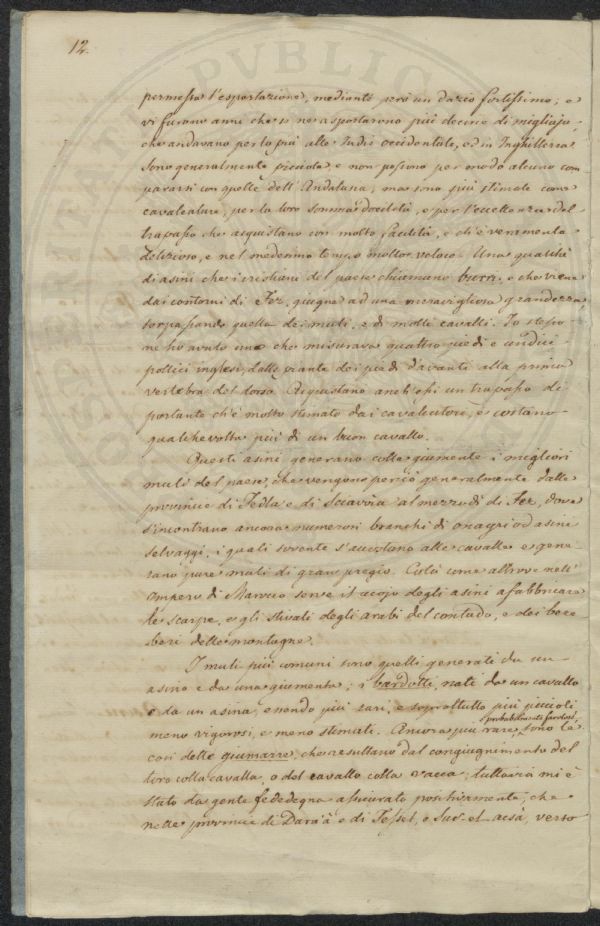 12.
permessa l'esportazione, mediante però un dazio fortissimo; e
vi furono anni che se ne asportarono più decine di migliaja,
che andavano per lo più alle Indie occidentali, ed in Inghilterra
Sono generalmente picciole, e non possono per modo alcuno com
pararsi con quelle dell'Andalusia, ma sono più stimate come
cavalcature, per la loro somma docilità, e per l'eccellenza del
trapasso che acquistano con molta facilità, e ch'è veramente
delizioso, e nel medesimo tempo molto veloce. Una qualità
di asini che i cristiani del paese chiamano burri, e che viene
dai contorni di Fez, giugne ad una meravigliosa grandezza,
sorpassando quella dei muli, e di molti cavalli. Io stesso
ne ho avuto uno che misurava quattro piedi e undici
pollici inglesi, dalle piante dei piedi d'avanti alla prima
vertebra del dorso. Acquistano anch'essi un trapasso di
portante ch'è molto stimato dai cavalcatori, e costano
qualche volta più di un buon cavallo.
Questi asini generano colle giumente i migliori
muli del paese, che vengono perciò generalmente dalle
provincie di Tedla e di Sciavvia al mezzodì di Fez, dove
s'incontrano ancora numerosi branchi di onagri od asini
selvaggi, i quali sovente s'accostano alle cavalle e gene
rano pure muli di gran pregio. Colà come altrove nell'
impero di Marocco serve il cuojo degli asini a fabbricare
le scarpe, e gli stivali degli arabi del contado, e dei bere
beri delle montagne.
I muli più comuni sono quelli generati da un
asino e da una giumenta; i bardotti, nati da un cavallo
e da un asina, essendo più rari, e soprattutto più piccioli
meno vigorosi, e meno stimati. Ancora più rare, probabilmente favolose, sono le
così dette giumarre, che resultano dal congiugnimento del
toro colla cavalla, o del cavallo colla vacca; tuttavia mi è
stato da gente fededegna assicurato positivamente, che
nelle provincie di Daraà e di Tesset, e Sus-el-acsà, verso